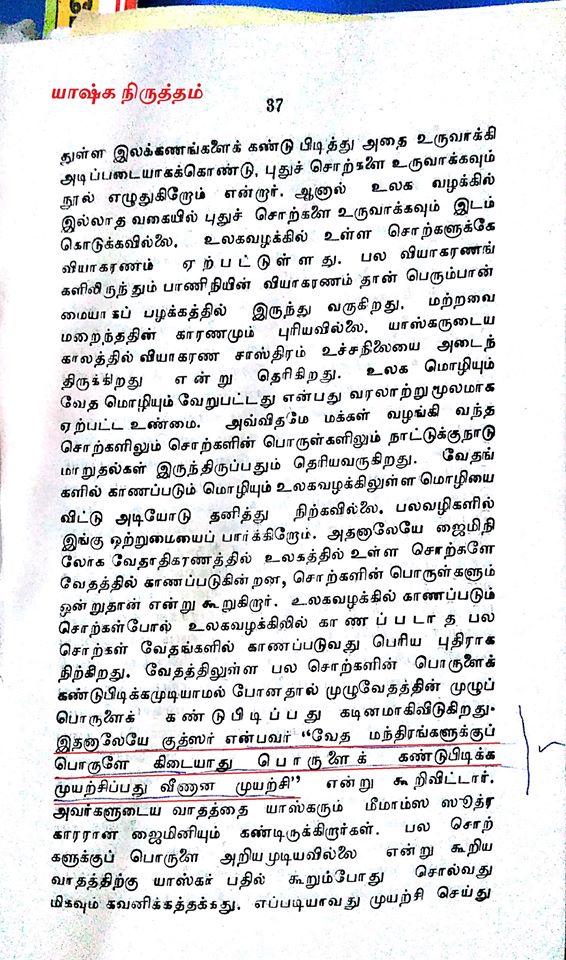 யாஷ்க நிருத்தம்
37
துள்ள இலக்கணங்களைக் கண்டு பிடித்து அதை உருவாக்கி
அடிப்படையாகக்கொண்டு, புதுச் சொற்களை உருவாக்கவும்
நூல் எழுதுகிறோம் என்றார். ஆனால் உலக வழக்கில்
இல்லாத வகையில் புதுச் சொற்களை உருவாக்கவும் இடம்
கொடுக்கவில்லை. உலகவழக்கில் உள்ள சொற்களுக்கே
வியாகரணம் ஏற்பட்டுள்ளது. பல வியாகரணங்
களிலிருந்தும் பாணிநியின் வியாகரணம் தான் பெரும்பான்
மையாகப் பழக்கத்தில் இருந்து வருகிறது. மற்றவை
மறைந்ததின் காரணமும் புரியவில்லை. யாஸ்கருடைய
காலத்தில் வியாகரண சாஸ்திரம் உச்சநிலையை அடைந்
திருக்கிறது என்று தெரிகிறது. உலக மொழியும்
வேத மொழியும் வேறுபட்டது என்பது வரலாற்று மூலமாக
ஏற்பட்ட உண்மை. அவ்விதமே மக்கள் வழங்கி வந்த
சொற்களிலும் சொற்களின் பொருள்களிலும் நாட்டுக்குநாடு
மாறுதல்கள் இருந்திருப்பதும் தெரியவருகிறது. வேதங்
களில் காணப்படும் மொழியும் உலகவழக்கிலுள்ள மொழியை
விட்டு அடியோடு தனித்து நிற்கவில்லை. பலவழிகளில்
இங்கு ஒற்றுமையைப் பார்க்கிறோம். அதனாலேயே ஜைமிநி
லோக வேதாதிகரணத்தில் உலகத்தில் உள்ள சொற்களே
வேதத்தில் காணப்படுகின்றன, சொற்களின் பொருள்களும்
ஒன்றுதான் என்று கூறுகிறார். உலகவழக்கில் காணப்படும்
சொற்கள்போல் உலகவழக்கிலில் காணப்படாத பல
சொற்கள் வேதங்களில் காணப்படுவது பெரிய புதிராக
நிற்கிறது. வேதத்திலுள்ள பல சொற்களின் பொருளைக்
கண்டுபிடிக்கமுடியாமல் போனதால் முழுவேதத்தின் முழுப்
பொருளைக் கண்டுபிடிப்பது கடினமாகிவிடுகிறது.
இதனாலேயே குத்ஸர் என்பவர் "வேத மந்திரங்களுக்குப்
பொருளே கிடையாது பொருளைக் கண்டுபிடிக்க
முயற்சிப்பது வீணான முயற்சி" என்று கூறிவிட்டார்.
அவர்களுடைய வாதத்தை யாஸ்கரும் மீமாம்ஸ ஸூத்ர
காரரான ஜைமினியும் கண்டிருக்கிறார்கள். பல சொற்
களுக்குப் பொருளை அறியமுடியவில்லை என்று கூறிய
வாதத்திற்கு யாஸ்கர் பதில் கூறும்போது சொல்வது
மிகவும் கவனிக்கத்தக்கது. எப்படியாவது முயற்சி செய்து